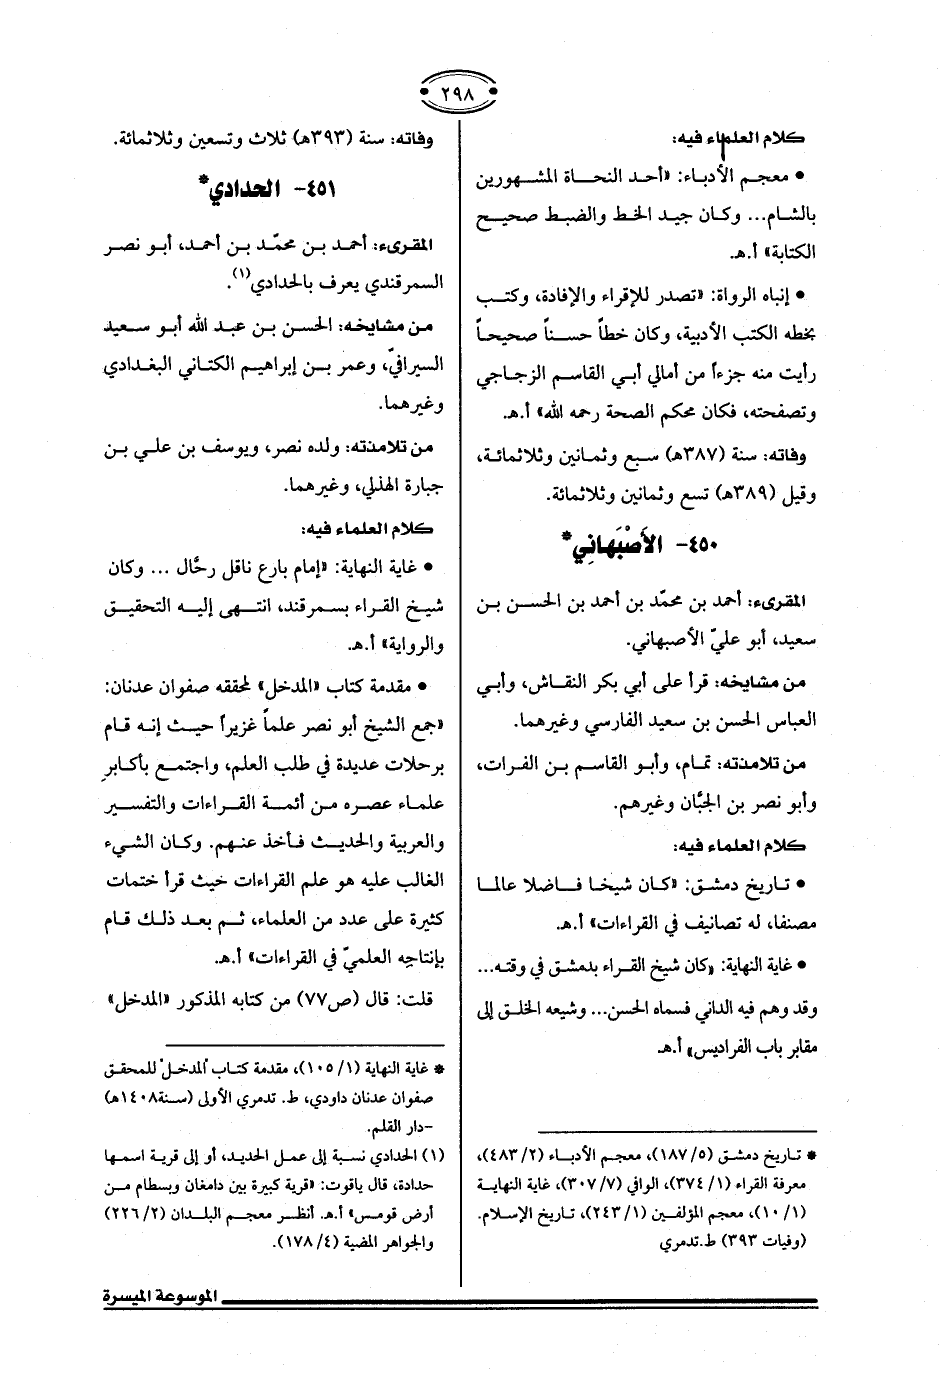 ٢٩٨
كلام العلماء فيه:
• معجم الأدباء: «أحد النحاة المشهورين
بالشام... وكان جيد الخط والضبط صحيح
الكتابة» أ.هـ.
• إنباه الرواة: «تصدر للإقراء والإفادة، وكتب
بخطه الكتب الأدبية، وكان خطاً حسناً صحيحاً
رأيت منه جزءاً من أمالي أبي القاسم الزجاجي
وتصفحته، فكان محكم الصحة رحمه الله» أ.هـ.
وفاته: سنة (٣٨٧هـ) سبع وثمانين وثلاثمائة،
وقيل (٣٨٩هـ) تسع وثمانين وثلاثمائة.
٤٥٠- الأَصْبَهانِي*
المقرىء: أحمد بن محمّد بن أحمد بن الحسن بن
سعيد، أبو عليّ الأصبهاني.
من مشايخه: قرأ على أبي بكر النقاش، وأبي
العباس الحسن بن سعيد الفارسي وغيرهما.
من تلامذته: تمام، وأبو القاسم بن الفرات،
وأبو نصر بن الجبَّان وغيرهم.
كلام العلماء فيه:
• تاريخ دمشق: «كان شيخا فاضلا عالما
مصنفا، له تصانيف في القراءات» أ.هـ.
• غاية النهاية: «كان شيخ القراء بدمشق في وقته...
وقد وهم فيه الداني فسماه الحسن... وشيعه الخلق إلى
مقابر باب الفراديس» أ.هـ
* تاريخ دمشق (٥/ ١٨٧)، معجم الأدباء (٢/ ٤٨٣)،
معرفة القراء (١/ ٣٧٤)، الوافي (٧/ ٣٠٧)، غاية النهاية
(١/ ١٠)، معجم المؤلفين (١/ ٢٤٣)، تاريخ الإسلام.
(وفيات ٣٩٣) ط.تدمري
وفاته: سنة (٣٩٣هـ) ثلاث وتسعين وثلاثمائة.
٤٥١- الحدادي*
المقرىء: أحمد بن محمّد بن أحمد، أبو نصر
السمرقندي يعرف بالحدادي(١).
من مشايخه: الحسن بن عبد الله أبو سعيد
السيرافيّ، وعمر بن إبراهيم الكتاني البغدادي
وغيرهما.
من تلامذته: ولده نصر، ويوسف بن علي بن
جبارة الهذلي، وغيرهما.
كلام العلماء فيه:
• غاية النهاية: «إمام بارع ناقل رحَّال ... وكان
شيخ القراء بسمرقند، انتهى إليه التحقيق
والرواية» أ.هـ.
• مقدمة كتاب «المدخل» لمحققه صفوان عدنان:
«جمع الشيخ أبو نصر علماً غزيراً حيث إنه قام
برحلات عديدة في طلب العلم، واجتمع بأكابرِ
علماء عصره من أئمة القراءات والتفسير
والعربية والحديث فأخذ عنهم. وكان الشيء
الغالب عليه هو علم القراءات حيث قرأ ختمات
كثيرة على عدد من العلماء، ثم بعد ذلك قام
بإنتاجه العلميّ في القراءات» أ.هـ.
قلت: قال (ص٧٧) من كتابه المذكور «المدخل»
* غاية النهاية (١/ ١٠٥)، مقدمة كتاب "المدخل" للمحقق
صفوان عدنان داودي، ط. تدمري الأولى (سنة١٤٠٨هـ)
-دار القلم.
(١) الحدادي نسبة إلى عمل الحديد، أو إلى قرية اسمها
حدادة، قال ياقوت: «قرية كبيرة بين دامغان وبسطام من
أرض قومس» أ.هـ. أنظر معجم البلدان (٢/ ٢٢٦)
والجواهر المضية (٤/ ١٧٨).
الموسوعة الميسرة